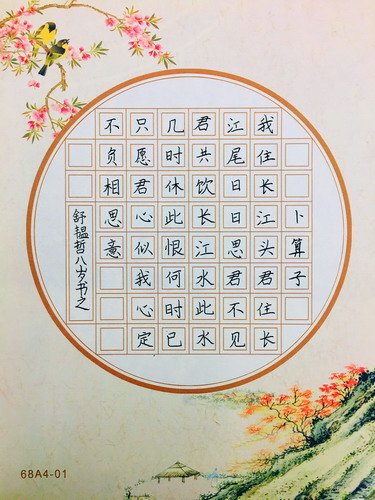 卜算子
我住长江头君住长
江尾日日思君不见
君共饮长江水此水
几时休此恨何时已
只愿君心似我心定
不负相思意
舒韫哲八岁书之
68A4-01